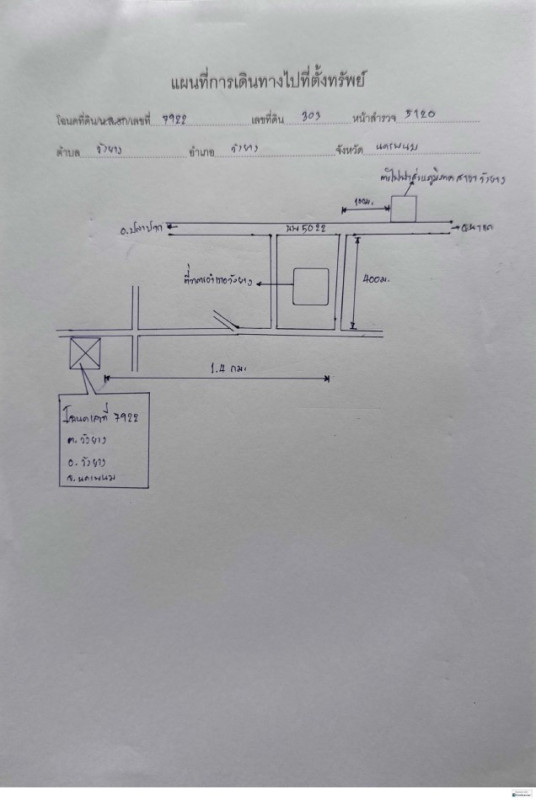 แผนที่การเดินทางไปที่ตั้งทรัพย์
โฉนดที่ดิน/น.ส.3ก/เลขที่ 7922 เลขที่ดิน 303 หน้าสำรวจ 5120
ตำบล วังยาง อำเภอ วังยาง จังหวัด นครพนม
การไฟฟ้าส่วนภูมิภาค สาขา วังยาง
อ.ปลาปาก นพ5022 อ.นาแก
ที่ว่าการอำเภอวังยาง
400ม.
1.4 กม.
โฉนดเลขที่ 7922
ต.วังยาง
อ.วังยาง
จ.นครพนม